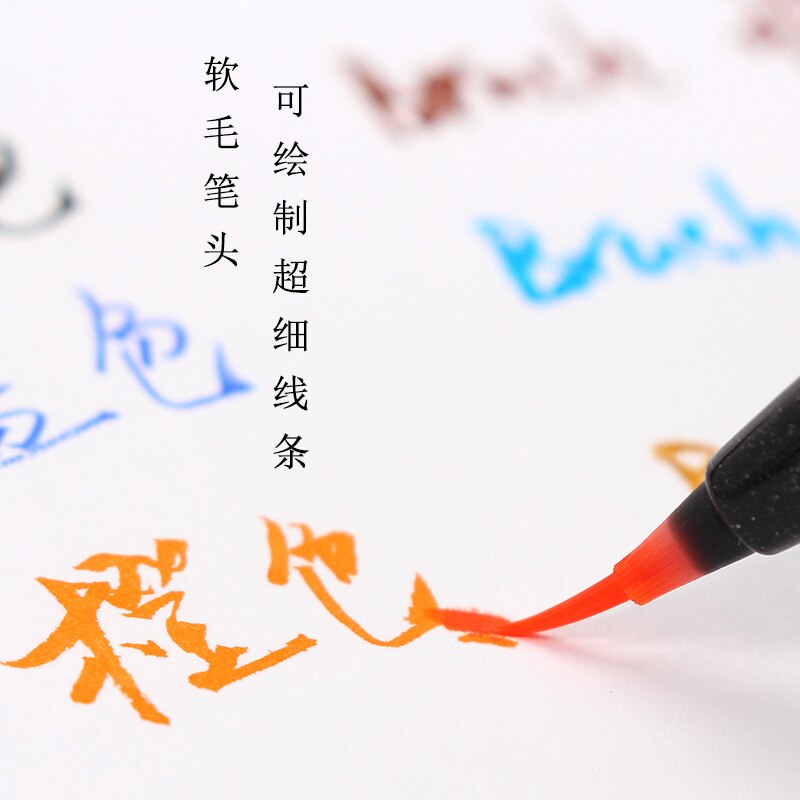 软毛笔头
可绘制超细线条
Brush
Brush
色
橙色